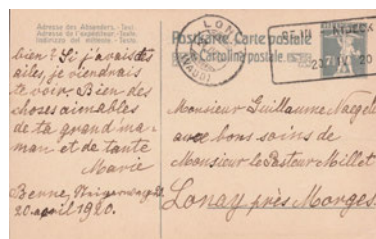 Adresse des Absenders.-Text.
Adresse de l'expéditeur.-Texte.
Indirizzo del mittente.-Testo.
bien? Si j'avais des
ailes, je viendrais
te voir. Bien des
choses aimables
de ta grand'ma-
man et de tante
Marie
Berne,
20 april 1920.
Postkarte. Carte postale
Cartolina postale.
LON
(VAUD)
20
7½
Monsieur Guillaume Naegeli
aux bons soins de
Monsieur le Pasteur Millet
Lonay près Morges.